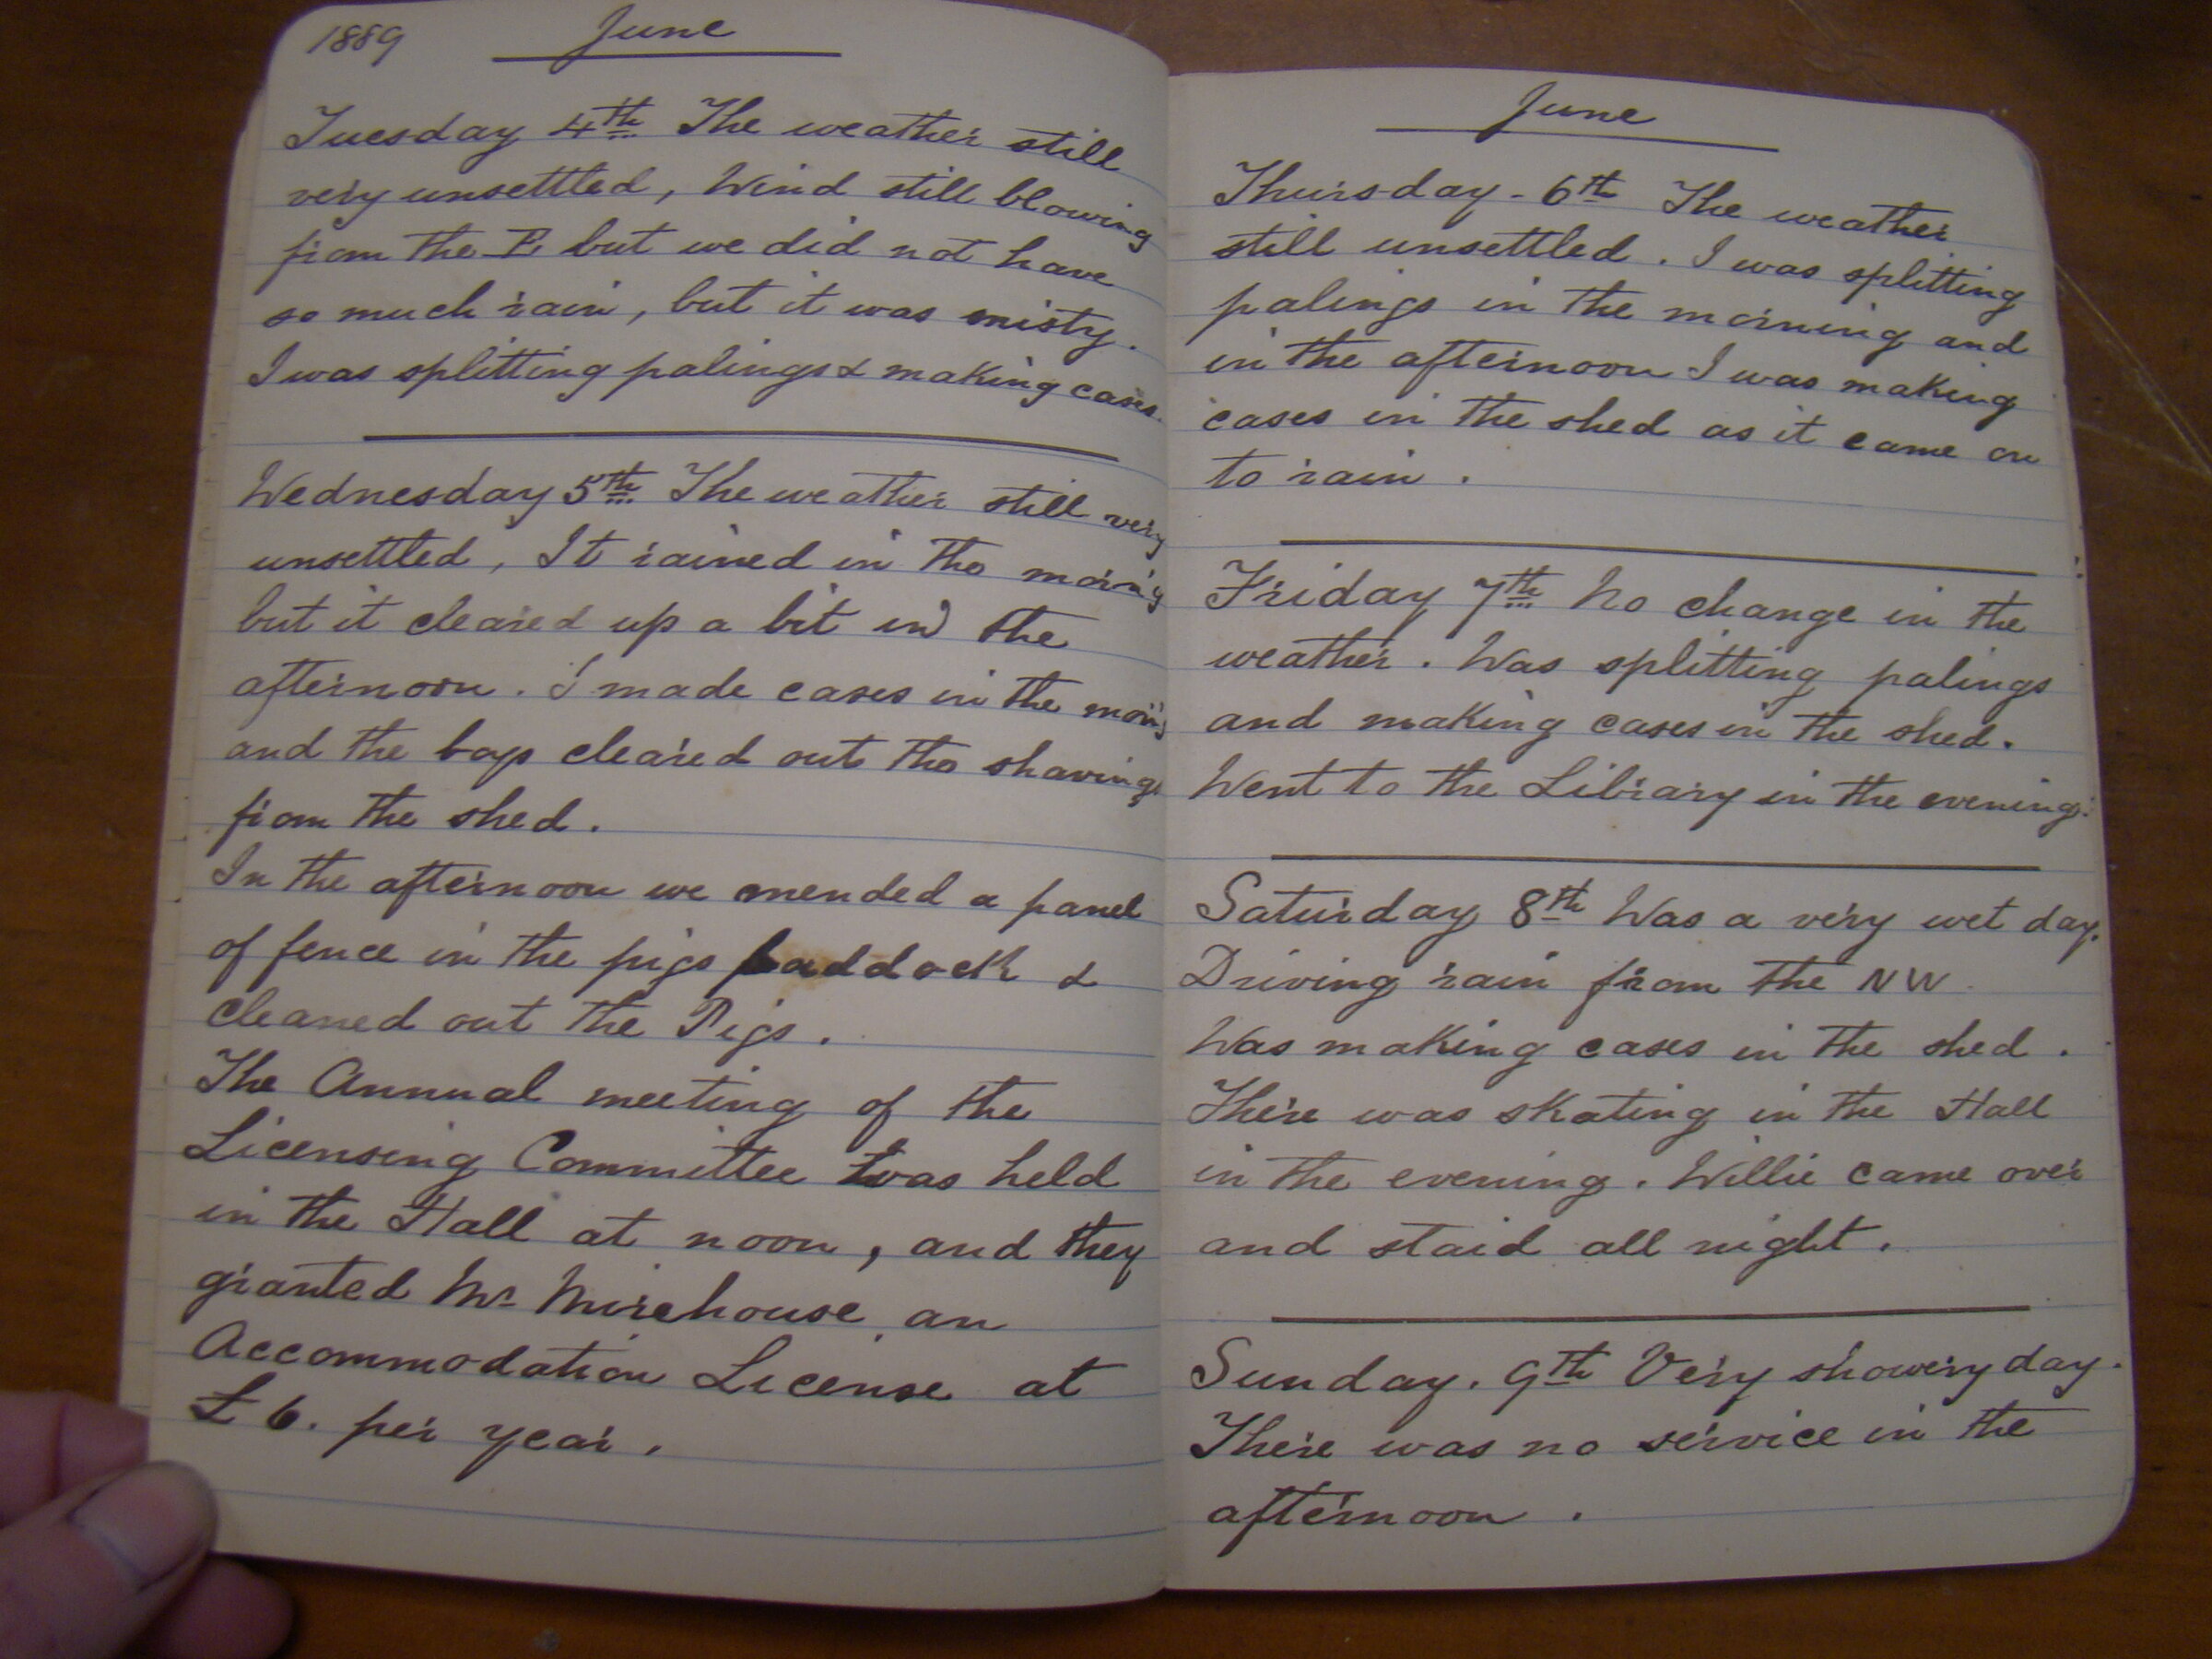 1889 June
Tuesday 4th The weather still
very unsettled, Wind still blowing
from the E but we did not have
so much rain, but it was misty.
I was splitting palings & making cases.
Wednesday 5th The weather still very
unsettled, It rained in the morning
but it cleared up a bit in the
afternoon. I made cases in the morng
and the boys cleared out the shavings
from the shed.
In the afternoon we mended a panel
of fence in the pigs paddock &
cleaned out the Pigs.
The Annual meeting of the
Licensing Committee was held
in the Hall at noon, and they
granted Mr Mirehouse an
Accommodation License at
£6. per year.
June
Thursday - 6th The weather
still unsettled. I was splitting
palings in the morning and
in the afternoon I was making
cases in the shed as it came on
to rain.
Friday 7th No change in the
weather. Was splitting palings
and making cases in the shed.
Went to the Library in the evening.
Saturday 8th Was a very wet day.
Driving rain from the NW
Was making cases in the shed.
There was skating in the Hall
in the evening. Willie came over
and staid all night.
Sunday. 9th Very showery day.
There was no service in the
afternoon.